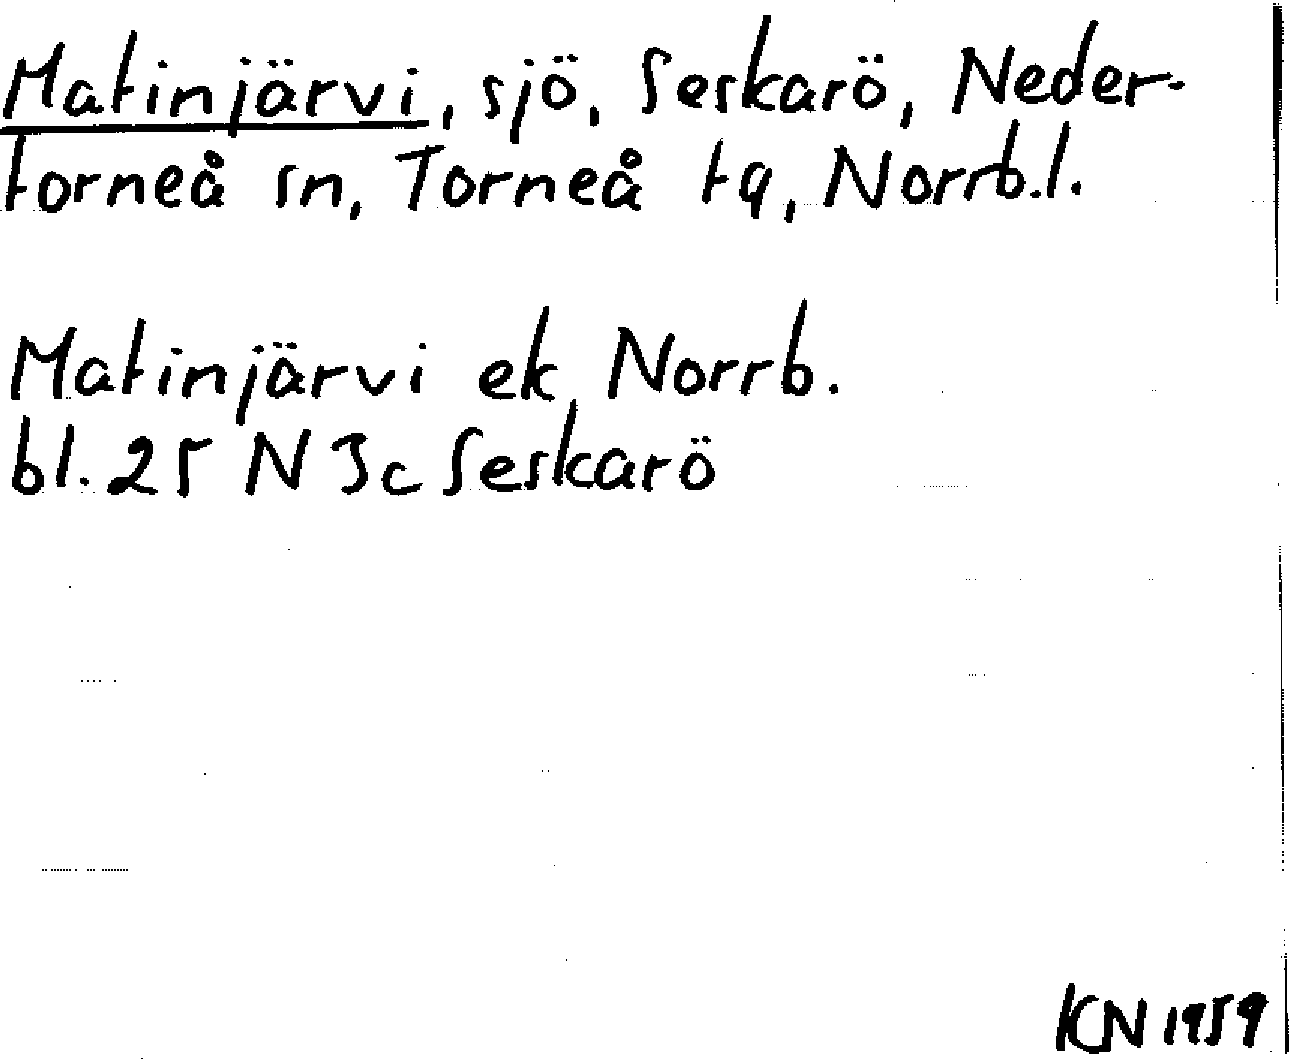 Matinjärvi, sjö, Seskarö, Neder-
torneå sn, Torneå tg, Norrb.l.
Matinjärvi ek Norrb.
bl. 25 N 3c Seskarö
KN 1959